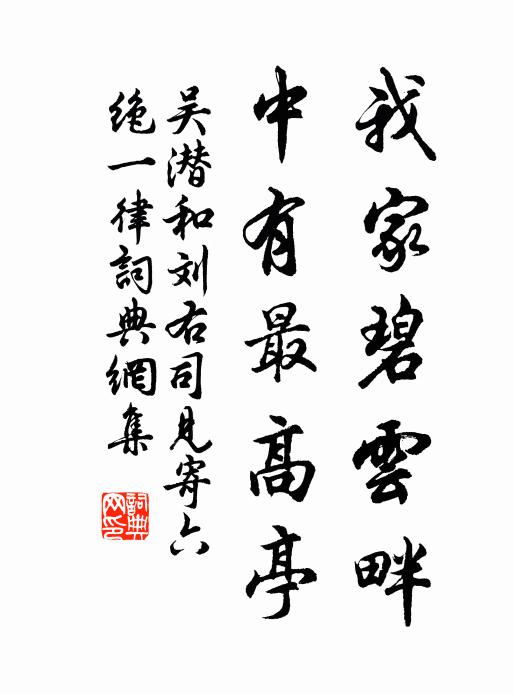 我家碧雲畔
中有最高亭
吴潜和刘右司見寄六
絶一律詞典網集
詞典
网印